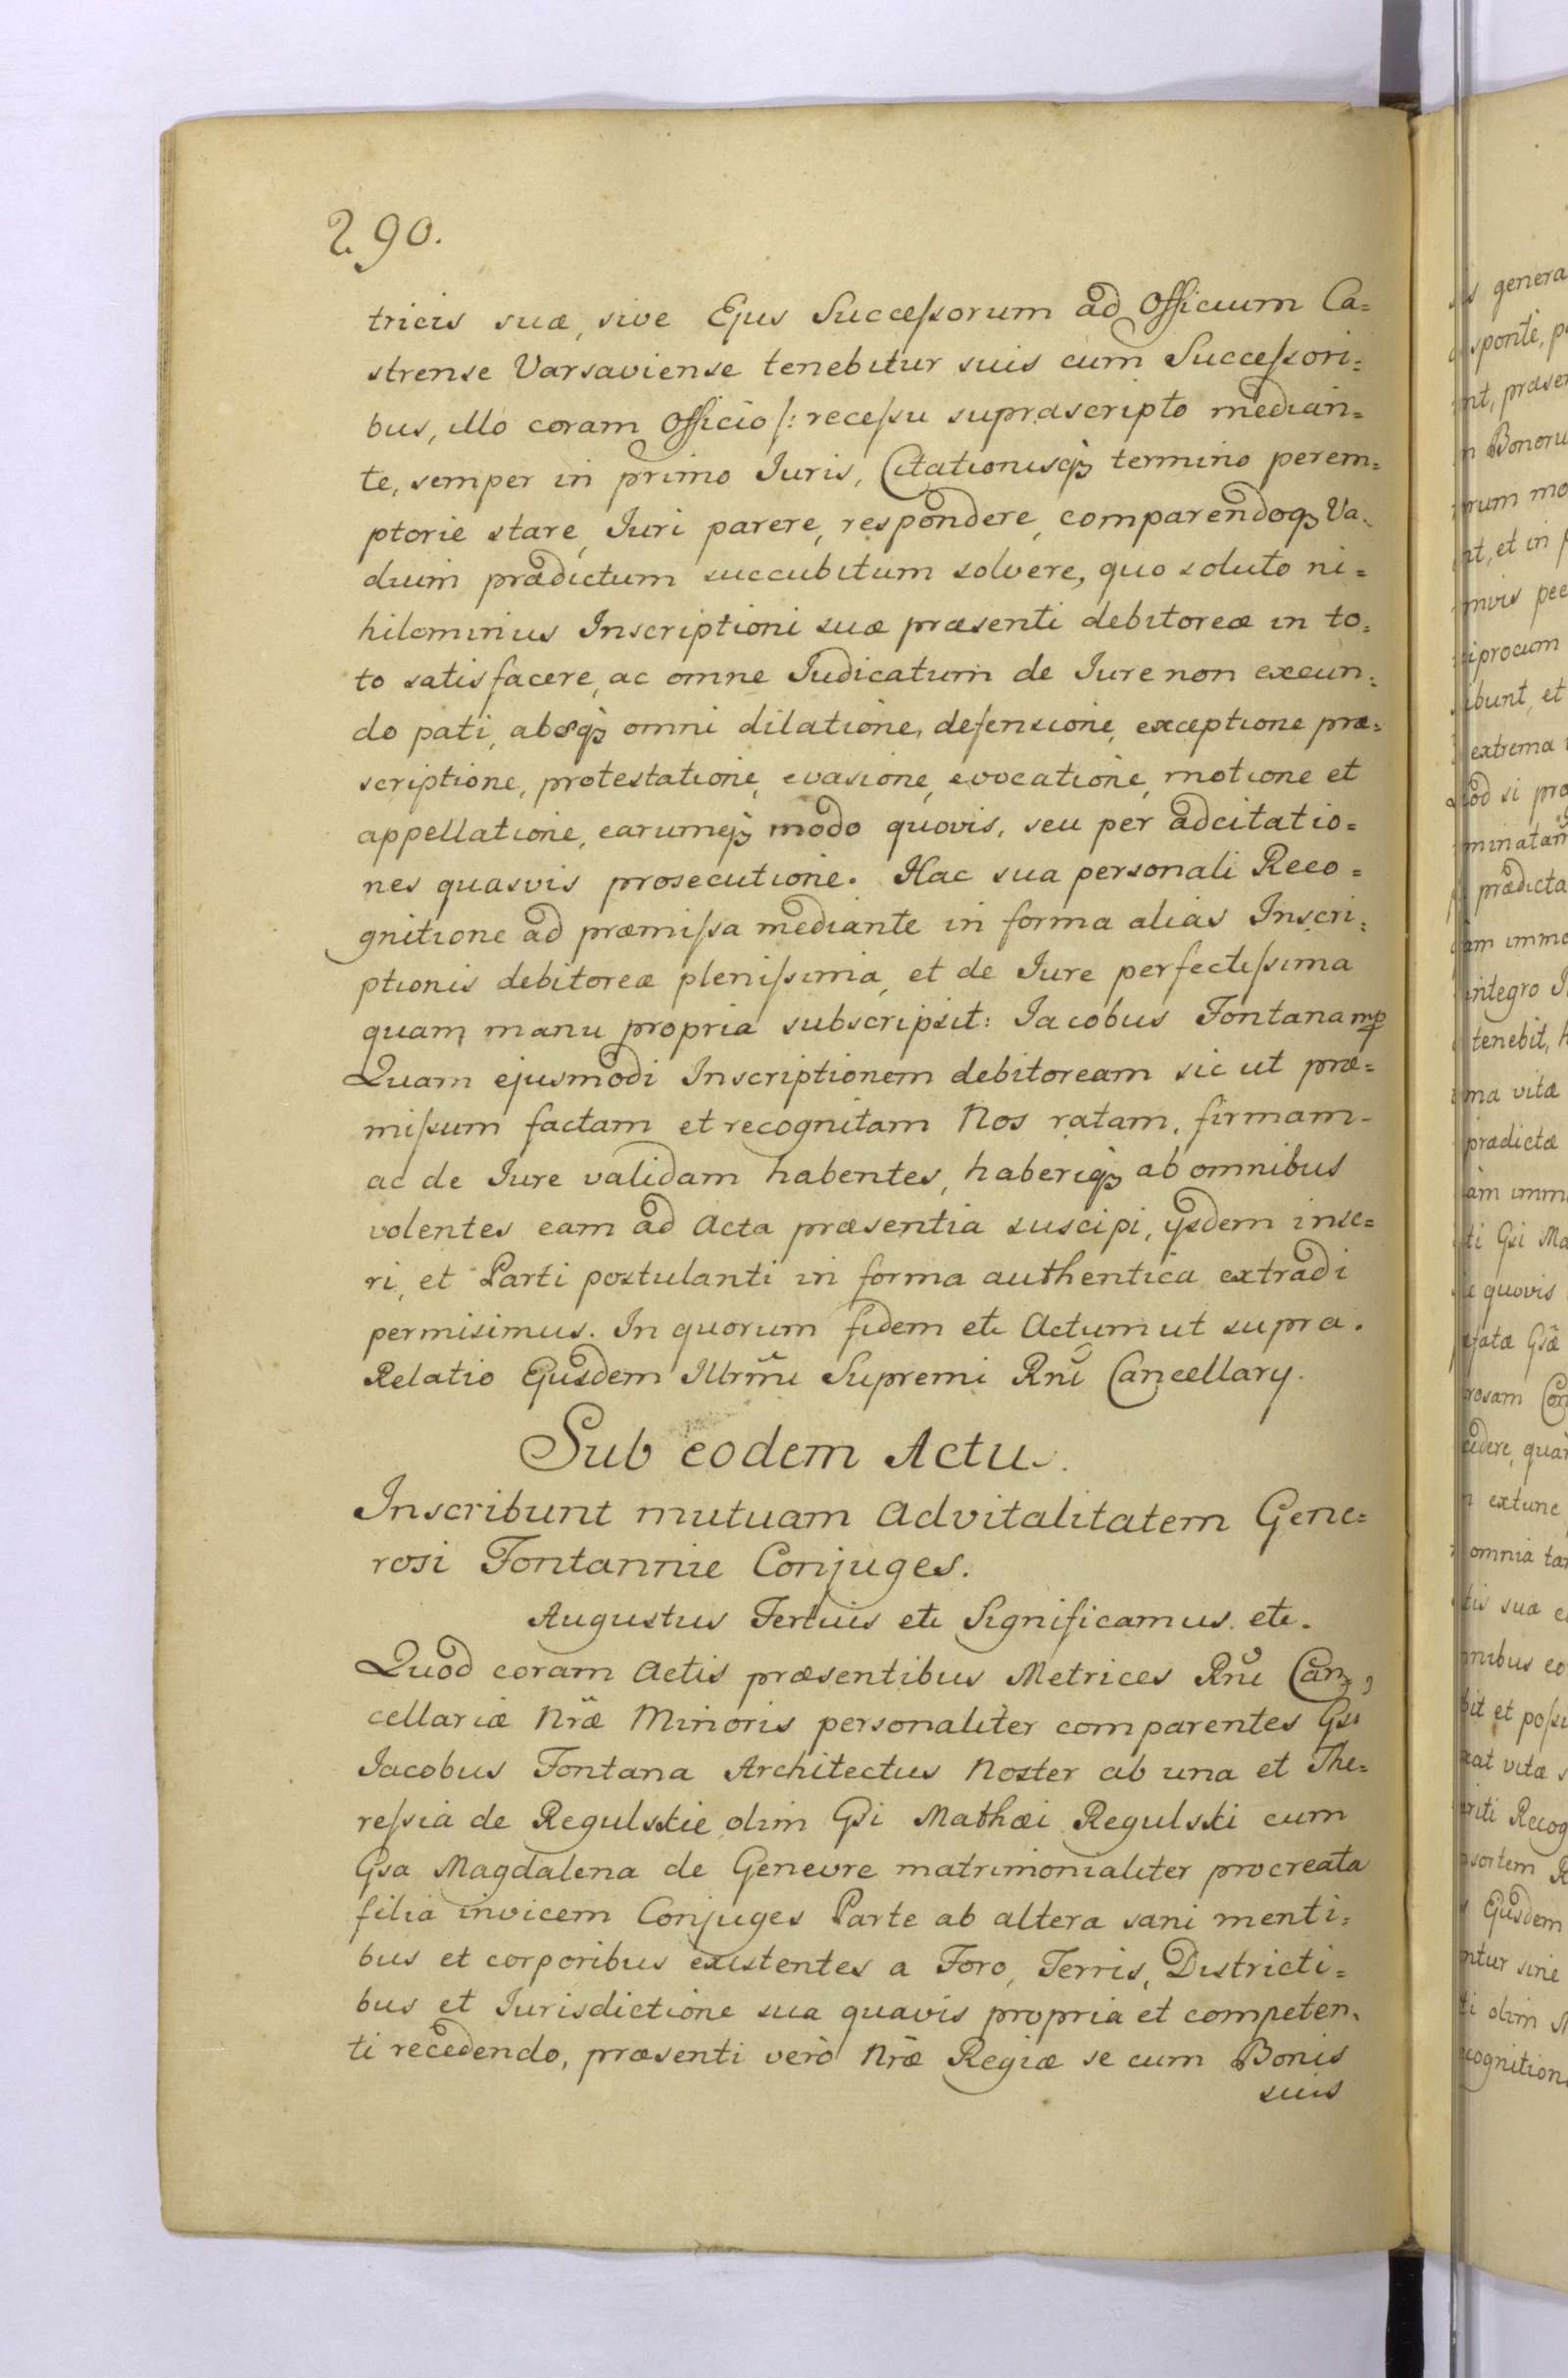 290.
tricis suæ, sive Ejus Successorum ad Officium Ca=
strense Varsaviense tenebitur suis cum Successori=
bus, illo coram Officio /: recessu suprascripto median=
te, semper in primo Juris, Citationisq̃ termino perem=
ptorie stare, Juri parere, respondere, comparendoq̃ Va=
dium prædictum succubitum solvere, quo soluto ni=
hilominus Inscriptioni suæ præsenti debitoreæ in to=
to satisfacere, ac omne Judicatum de Jure non exeun=
do pati, absq̃ omni dilatione, defensione, exceptione præ=
scriptione, protestatione, evasione, evocatione, motione et
appellatione, earumq̃ modo quovis, seu per adcitatio=
nes quasvis prosecutione. Hac sua personali Reco=
gnitione ad præmissa mediante in forma alias Inscri=
ptionis debitoreæ plenissima, et de Jure perfectissima
quam manu propria subscripsit: Jacobus Fontana mp
Quam ejusmodi Inscriptionem debitoream sic ut præ=
missum factam et recognitam Nos ratam, firmam-
ac de Jure validam habentes, haberiq̃ ab omnibus
volentes eam ad Acta præsentia suscipi, ijsdem inse=
ri, et Parti postulanti in forma authentica extradi
permisimus. In quorum fidem etc Actum ut supra.
Relatio Ejusdem Illrm̃i Supremi Rñi Cancellary.
Sub eodem Actu.
Inscribunt mutuam Advitalitatem Gene=
rosi Fontannie Conjuges.
Augustus Tertius etc Significamus. etc.
Quod coram Actis præsentibus Metrices Rñi Can=
cellariæ Nræ̃ Minoris personaliter comparentes Gsi
Jacobus Fontana Architectus Noster ab una et The=
ressia de Regulskie olim Gsi Mathæi Regulski cum
Gsa Magdalena de Genevre matrimonialiter procreata
filia invicem Conjuges Parte ab altera sani menti=
bus et corporibus existentes a Foro, Terris, Districti=
bus et Jurisdictione sua quavis propria et competen=
ti recedendo, præsenti verò Nræ̃ Regiæ se cum Bonis
suis